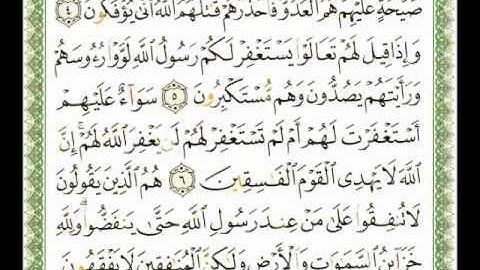 صَيْحَةٍ عَلَيْهِمْ هُمُ ٱلْعَدُوُّ فَٱحْذَرْهُمْ قَٰتَلَهُمُ ٱللَّهُ أَنَّىٰ يُؤْفَكُونَ ٤
وَإِذَا قِيلَ لَهُمْ تَعَالَوْا۟ يَسْتَغْفِرْ لَكُمْ رَسُولُ ٱللَّهِ لَوَّوْا۟ رُءُوسَهُمْ
وَرَأَيْتَهُمْ يَصُدُّونَ وَهُم مُّسْتَكْبِرُونَ ٥ سَوَآءٌ عَلَيْهِمْ
أَسْتَغْفَرْتَ لَهُمْ أَمْ لَمْ تَسْتَغْفِرْ لَهُمْ لَن يَغْفِرَ ٱللَّهُ لَهُمْ ۚ إِنَّ
ٱللَّهَ لَا يَهْدِى ٱلْقَوْمَ ٱلْفَٰسِقِينَ ٦ هُمُ ٱلَّذِينَ يَقُولُونَ
لَا تُنفِقُوا۟ عَلَىٰ مَنْ عِندَ رَسُولِ ٱللَّهِ حَتَّىٰ يَنفَضُّوا۟ ۗ وَلِلَّهِ
خَزَآئِنُ ٱلسَّمَٰوَٰتِ وَٱلْأَرْضِ وَلَٰكِنَّ ٱلْمُنَٰفِقِينَ لَا يَفْقَهُونَ